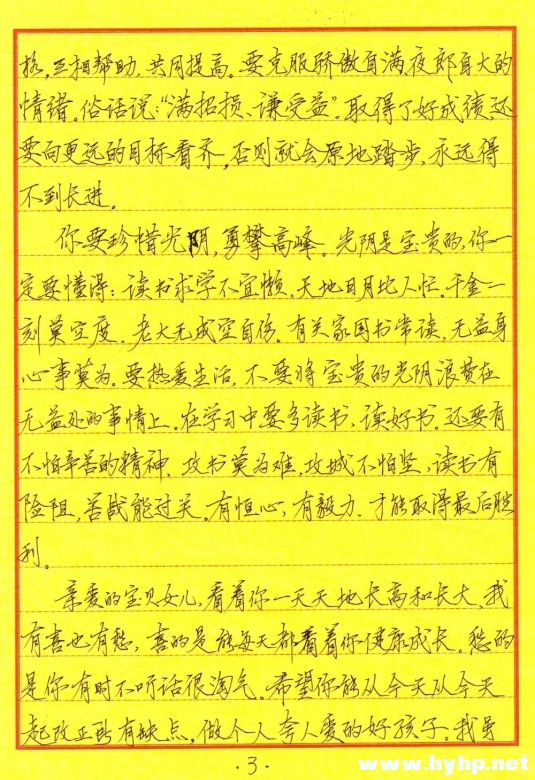 拔,互相帮助,共同提高。要克服骄傲自满夜郎自大的
情绪。俗话说:“满招损、谦受益”。取得了好成绩还
要向更远的目标看齐,否则就会原地踏步,永远得
不到长进。
你要珍惜光阴,勇攀高峰。光阴是宝贵的,你一
定要懂得:读书求学不宜懒,天地日月比人忙。千金一
刻莫空度,老大无成空自伤。有关家国书常读,无益身
心事莫为。要热爱生活,不要将宝贵的光阴浪费在
无益处的事情上。在学习中要多读书、读好书。还要有
不怕辛苦的精神,攻书莫为难,攻城不怕坚,读书有
险阻,苦战能过关。有恒心,有毅力,才能取得最后胜
利。
亲爱的宝贝女儿,看着你一天天地长高和长大,我
有喜也有愁,喜的是能每天都看着你健康成长。愁的
是你有时不听话很淘气。希望你能从今天从今天
起改正所有缺点,做个人夸人爱的好孩子。我虽
·3·
www.hyhp.net